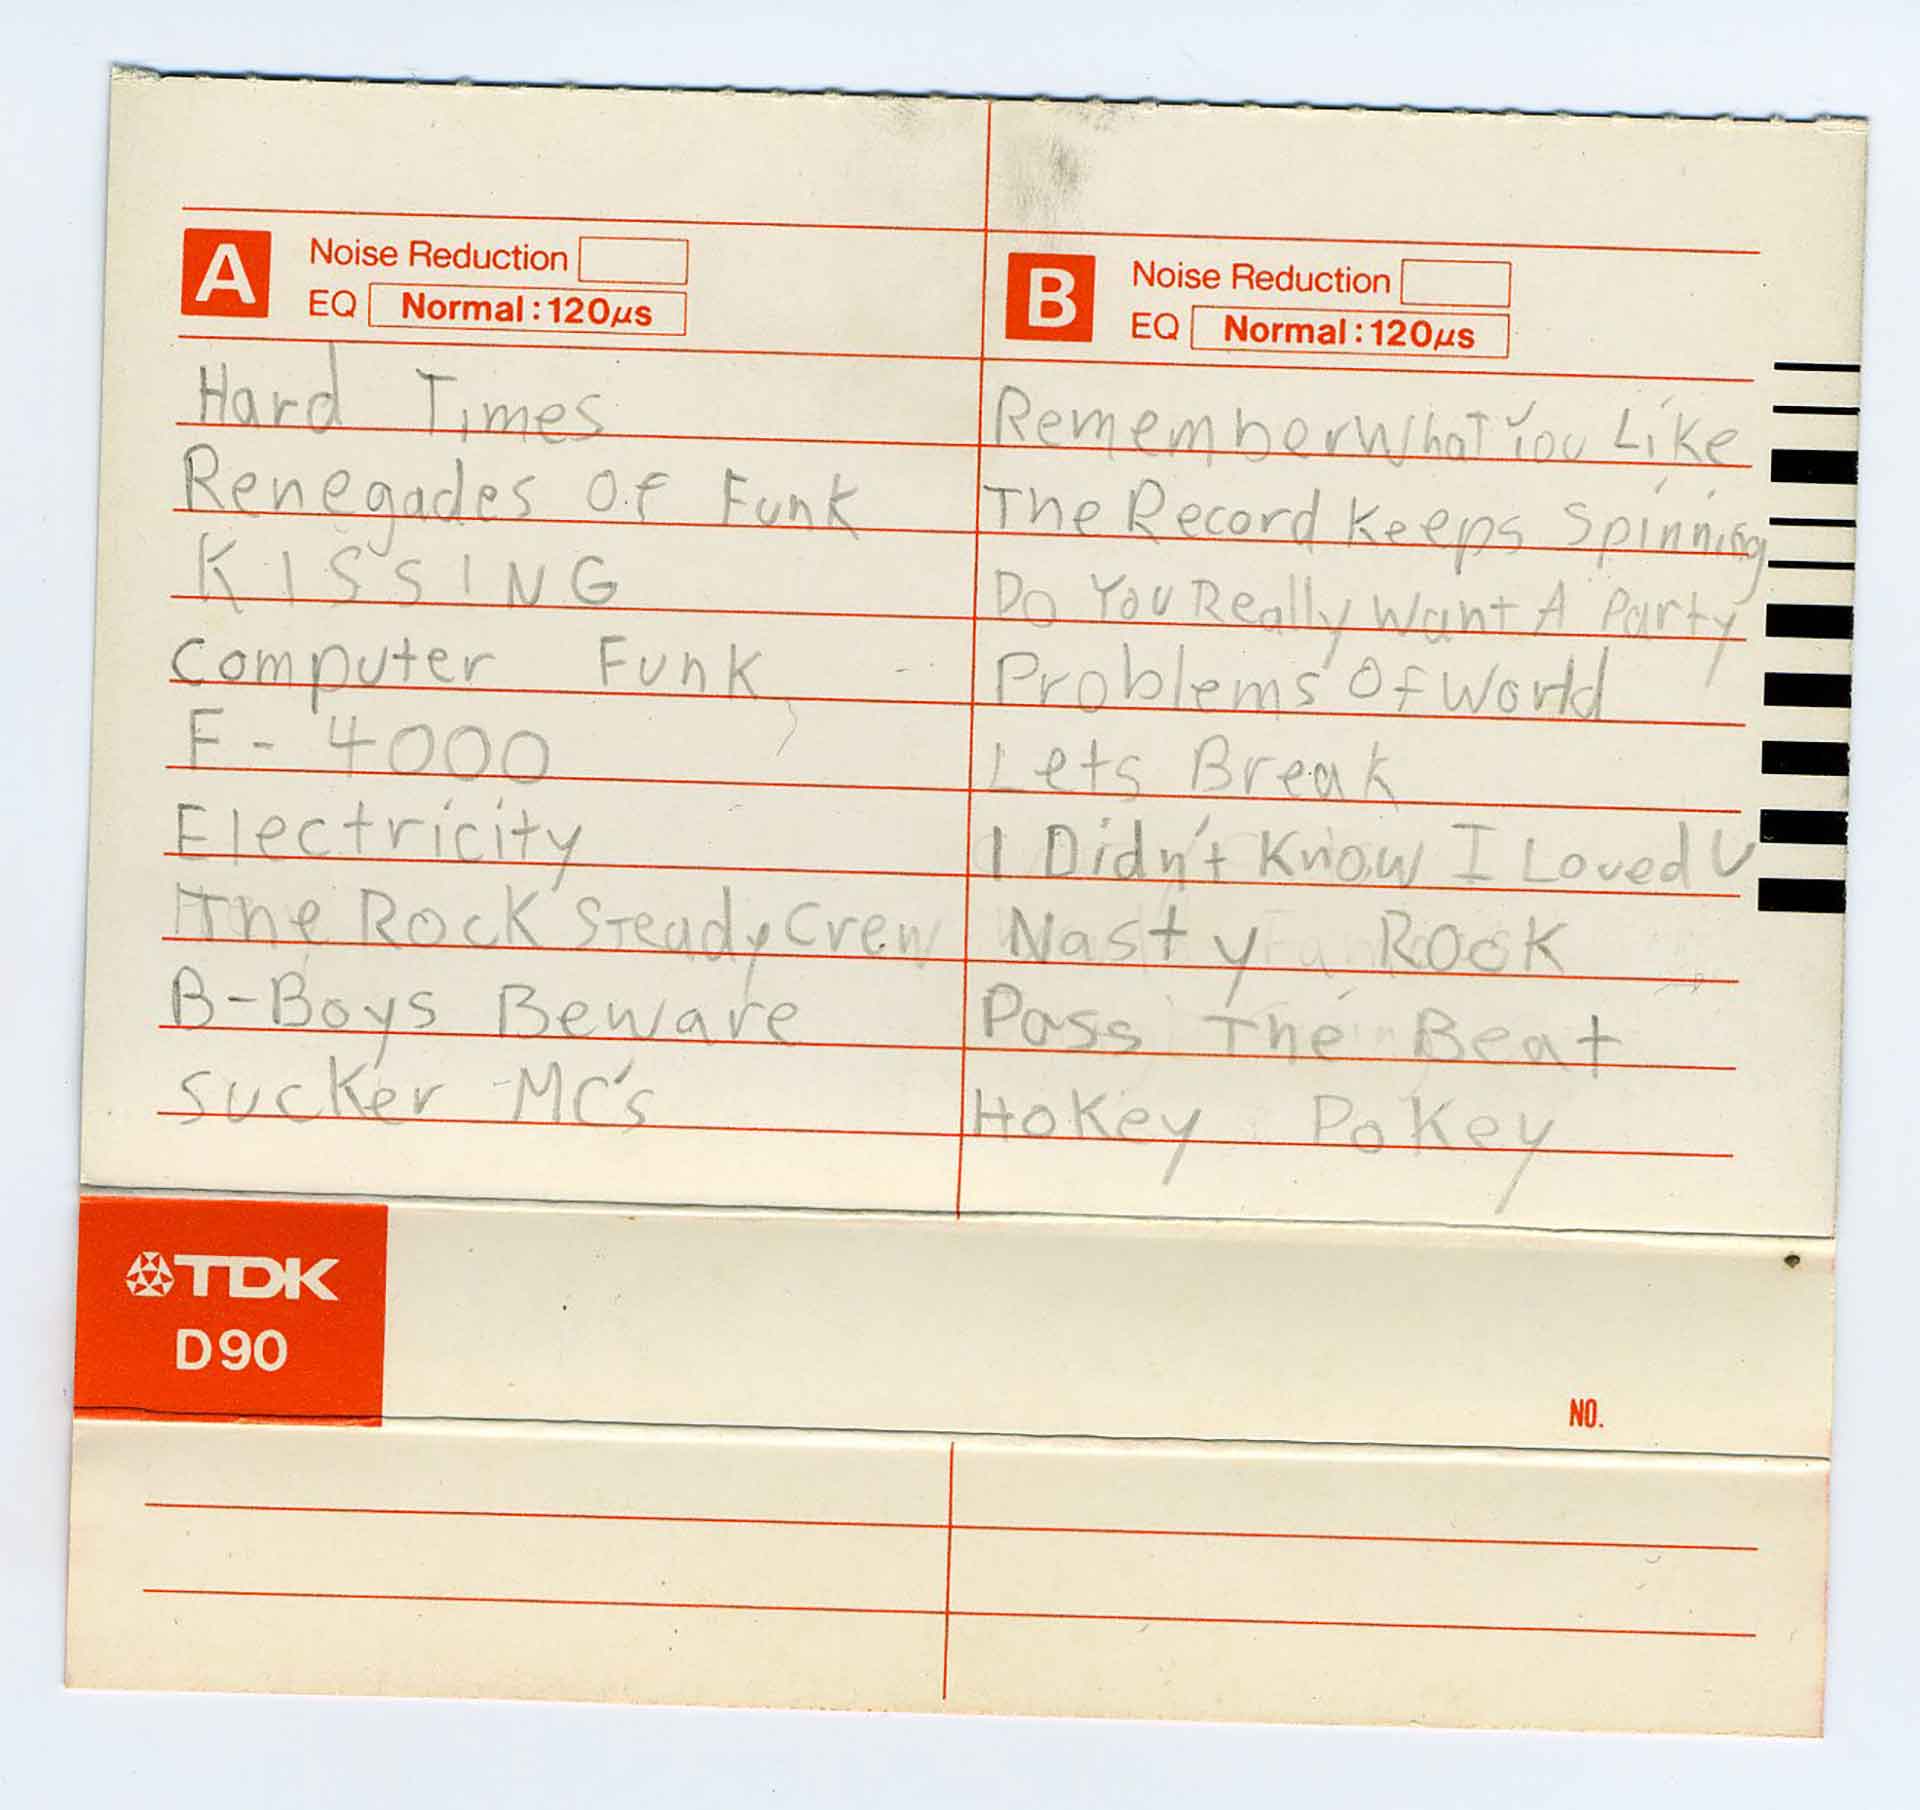 A Noise Reduction
EQ Normal : 120µs
Hard Times
Renegades Of Funk
KISSING
Computer Funk
F-4000
Electricity
The Rock Steady Crew
B-Boys Beware
Sucker -MC's
B Noise Reduction
EQ Normal : 120µs
Remember What You Like
The Record Keeps Spinning
Do You Really Want A Party
Problems Of World
Lets Break
I Didn't Know I Loved U
Nasty Rock
Pass The Beat
Hokey Pokey
TDK
D90
NO.